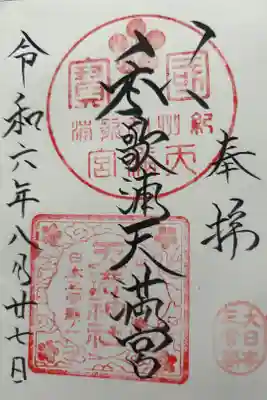 奉拝
和歌浦天満宮
令和六年八月廿七日
國寶
紀州和歌浦
天満宮
大日本
三菅廟